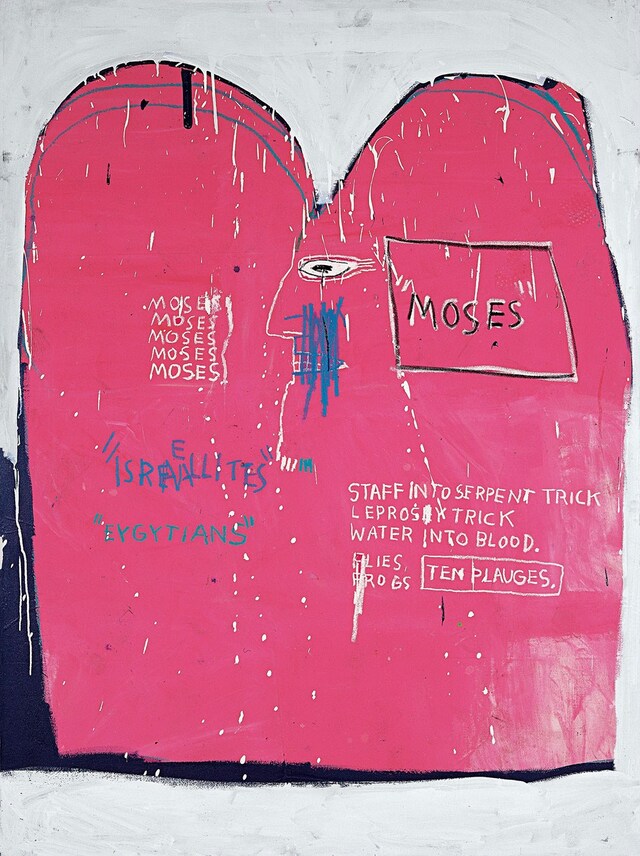 MOSES
MOSES
MOSES
MOSES
MOSES
MOSES
"ISREALLITES"
"EYGYTIANS"
STAFF INTO SERPENT TRICK
LEPROSY TRICK
WATER INTO BLOOD.
FLIES
FROGS TEN PLAUGES.